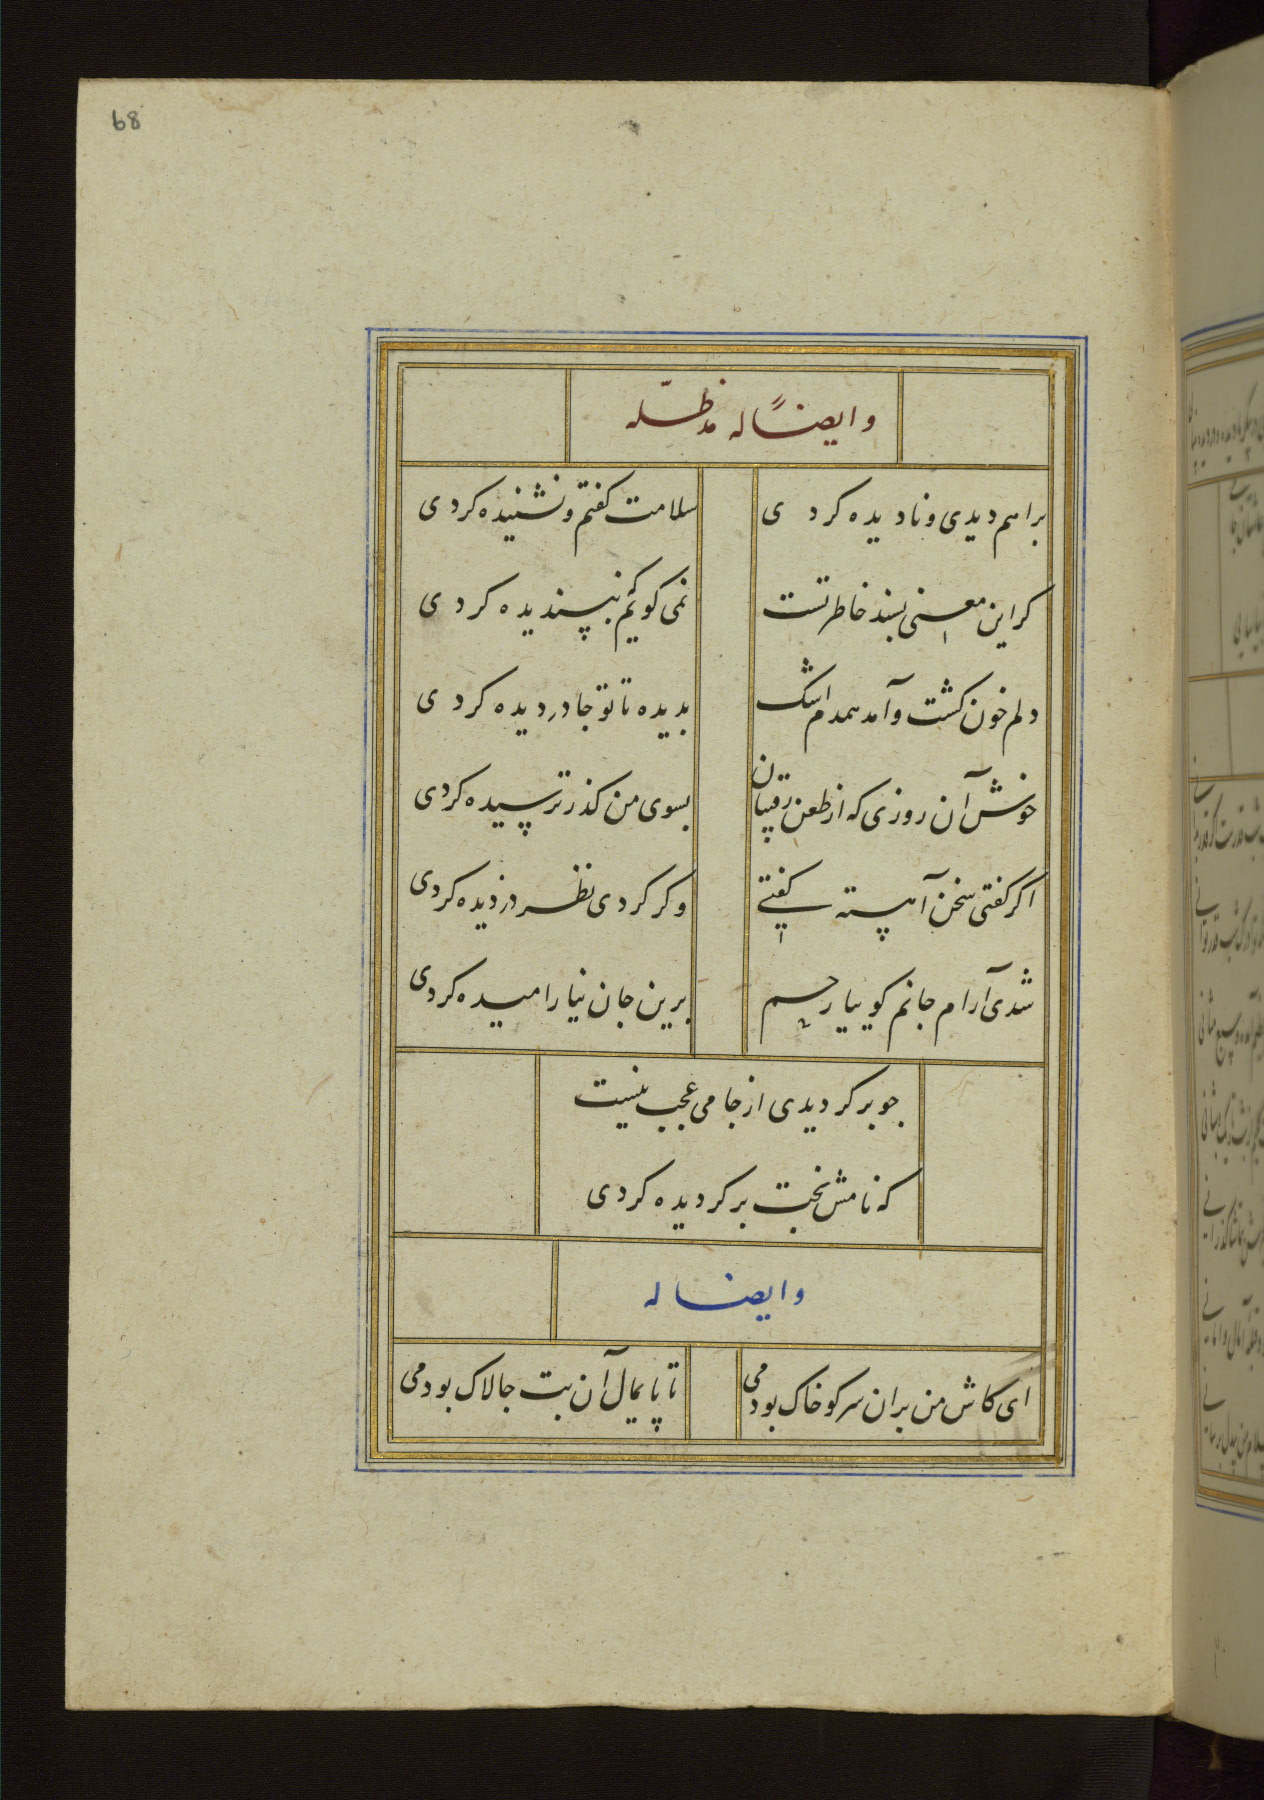 68
و ایضاً له مد ظلّه
براهم دیدی و نادیده کردی
سلامت کفتم و نشنیده کردی
کر این معنی پسند خاطر تست
نمی کویم نپسندیده کردی
دلم خون کشت و آمد همدم اشک
بدیده تا تو جا در دیده کردی
خوش آن روزی که از طعن رقیبان
بسوی من کذر ترسیده کردی
اکر کفتی سخن آهسته کفتی
و کر کردی نظر دزدیده کردی
شدی آرام جانم کوییا رحم
برین جان نیارامیده کردی
جو برکردیدی از جامی عجب نیست
که نامش بخت برکردیده کردی
و ایضا له
ای کاش من بران سر کو خاک بودمی
تا پایمال آن بت جالاک بودمی